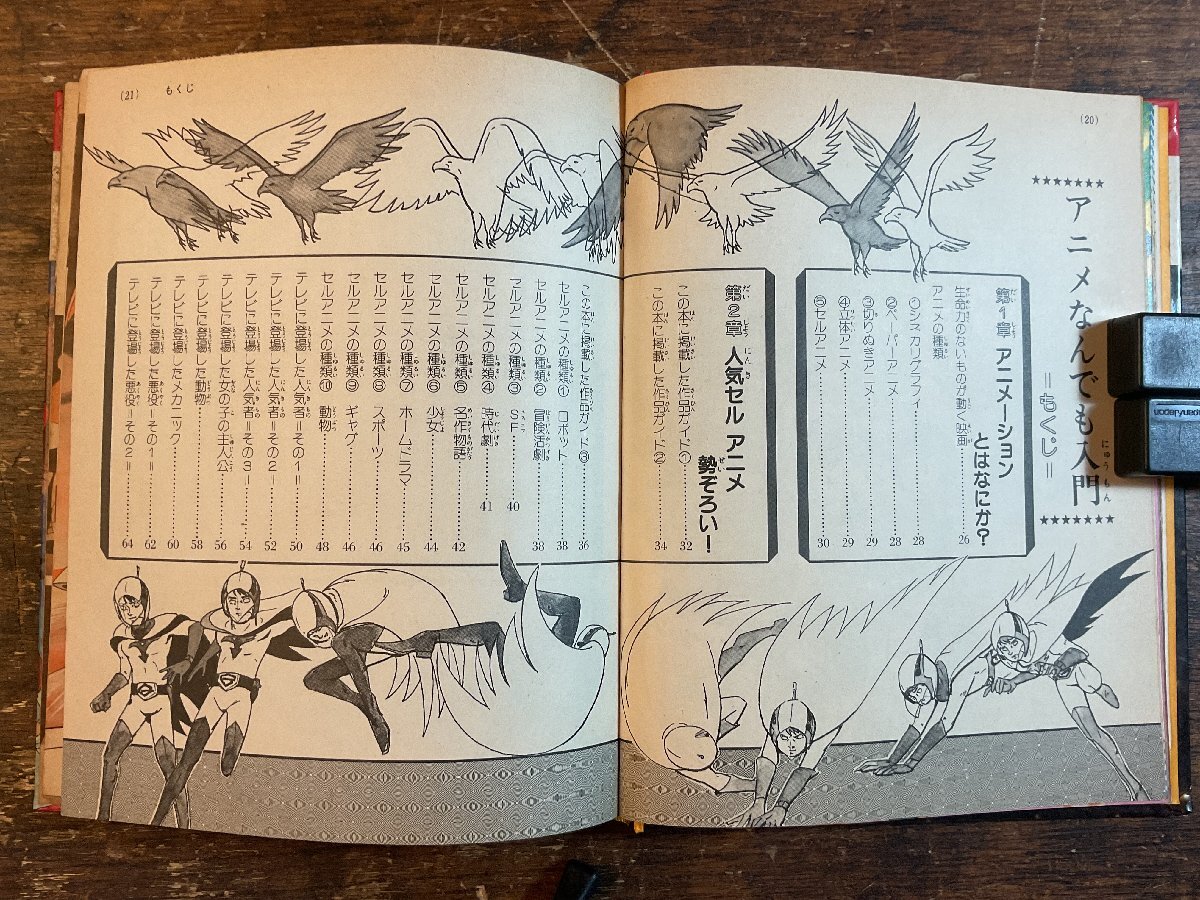 (20)
アニメなんでも入門
にゅうもん
=もくじ=
第1章 アニメーション
とはなにか?
生命力のないものが動く映画……26
アニメの種類
①シネカリグラフィ……28
②ペーパーアニメ……28
③切りぬきアニメ……29
④立体アニメ……29
⑤セルアニメ……30
第2章 人気セルアニメ
勢ぞろい!
この本に掲載した作品ガイド①……32
この本に掲載した作品ガイド②……34
(21) もくじ
この本に掲載した作品ガイド③……36
セルアニメの種類① ロボット……38
セルアニメの種類② 冒険活劇……38
セルアニメの種類③ SF……40
セルアニメの種類④ 時代劇……41
セルアニメの種類⑤ 名作物語……42
セルアニメの種類⑥ 少女……44
セルアニメの種類⑦ ホームドラマ……45
セルアニメの種類⑧ スポーツ……46
セルアニメの種類⑨ ギャグ……46
セルアニメの種類⑩ 動物……48
テレビに登場した人気者=その1=……50
テレビに登場した人気者=その2=……52
テレビに登場した人気者=その3=……54
テレビに登場した女の子の主人公……56
テレビに登場した動物……58
テレビに登場したメカニック……60
テレビに登場した悪役=その1=……62
テレビに登場した悪役=その2=……64